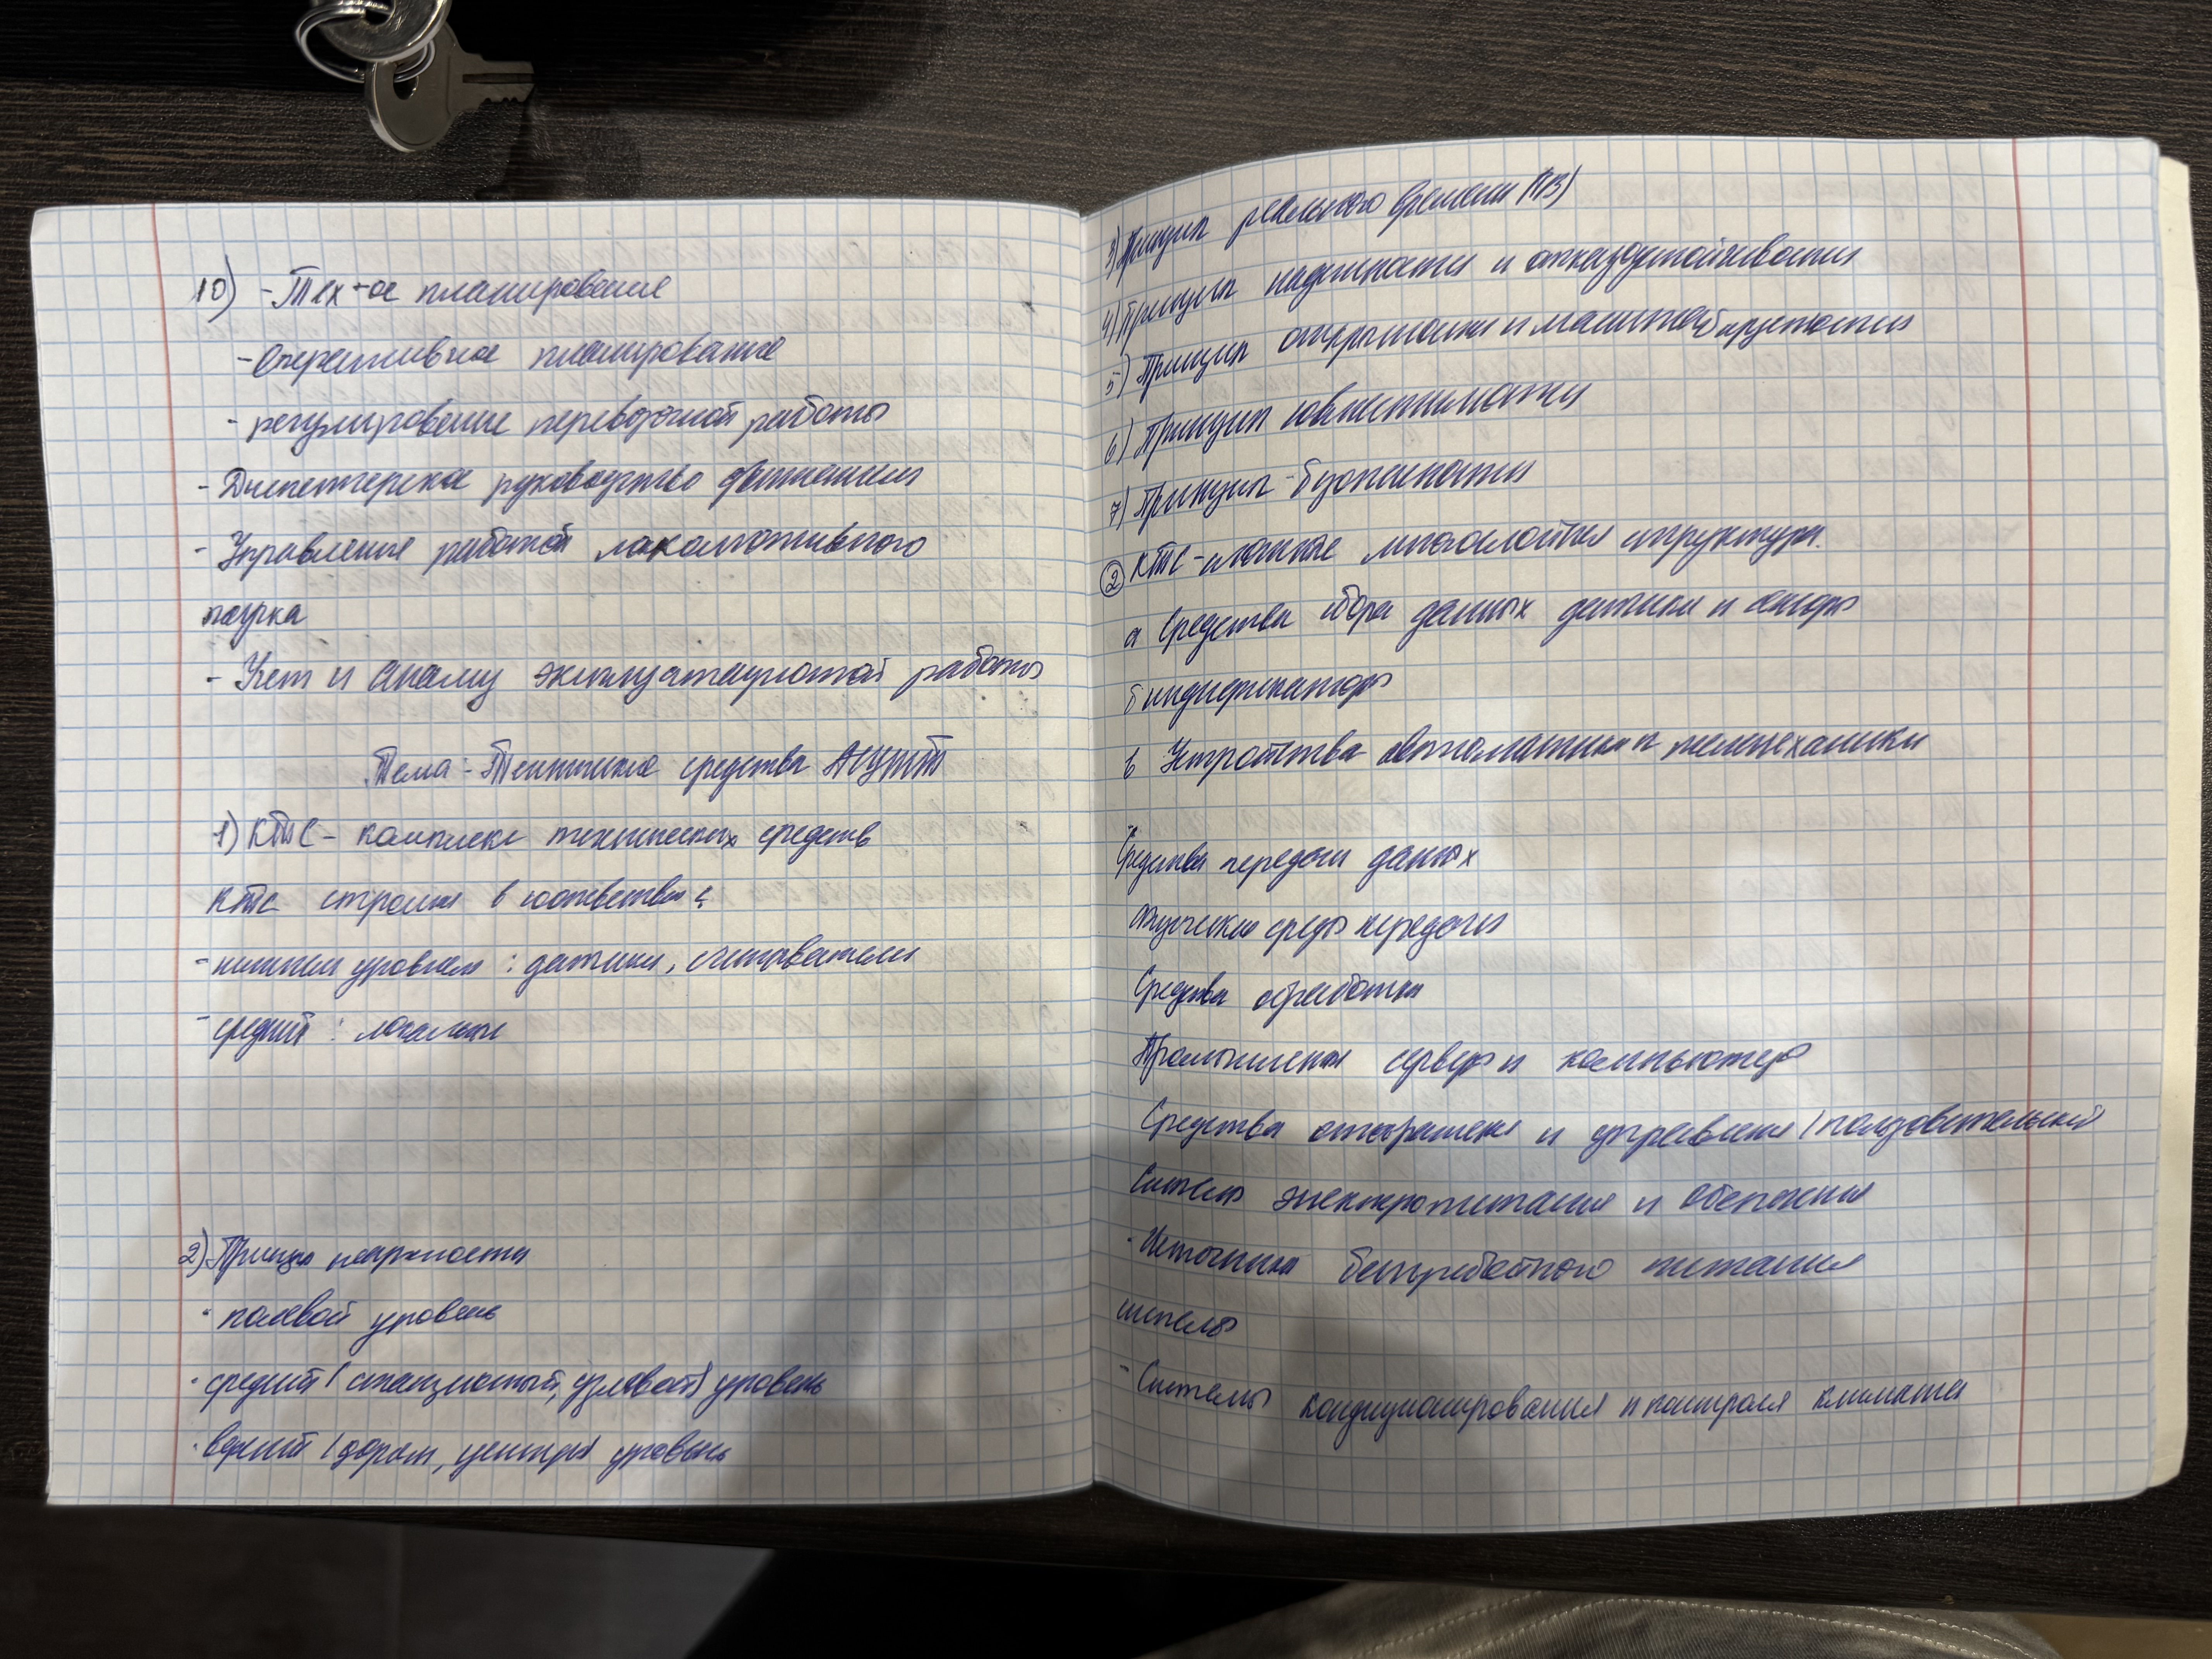 10) - Тех-ое планирование
- Оперативное планирование
- регулирование перевозочной работы
- Диспетчерское руководство движением
- Управление работой локомотивного
парка
- Учет и анализ эксплуатационной работы
Тема: Технические средства АСУЖТ
1) КТС - комплекс технических средств
КТС строится в соответствии с:
- нижнем уровнем: датчики, считыватели
- средний: локальные
2) Принцип иерархности
- полевой уровень
- средний (станционный, узловой) уровень
- верхний (дорож, центра) уровень
3) Принцип реального времени (РВ)
4) Принцип надежности и отказоустойчивости
5) Принцип открытости и масштабируемости
6) Принцип совместимости
7) Принцип безопасности
② КТС - сложная многослойная структура.
а Средства сбора данных датчики и сенсоры
б индификаторы
в Устройства автоматики и телемеханики
Средства передачи данных
Физические среды передачи
Средства обработки
Промышленные серверы и компьютеры
Средства отображения и управления (пользовательский
Системы электропитания и обеспечения
- Источники бесперебойного питания
системы
- Системы кондиционирования и контроля климата